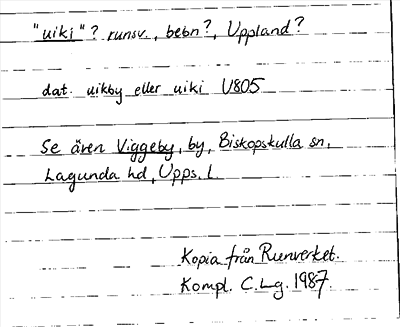 "uiki"? runsv., bebn?, Uppland?
dat. uikby eller uiki U805
Se även Viggeby, by, Biskopskulla sn,
Lagunda hd, Upps. l.
Kopia från Runverket.
Kompl. C.Lg. 1987.